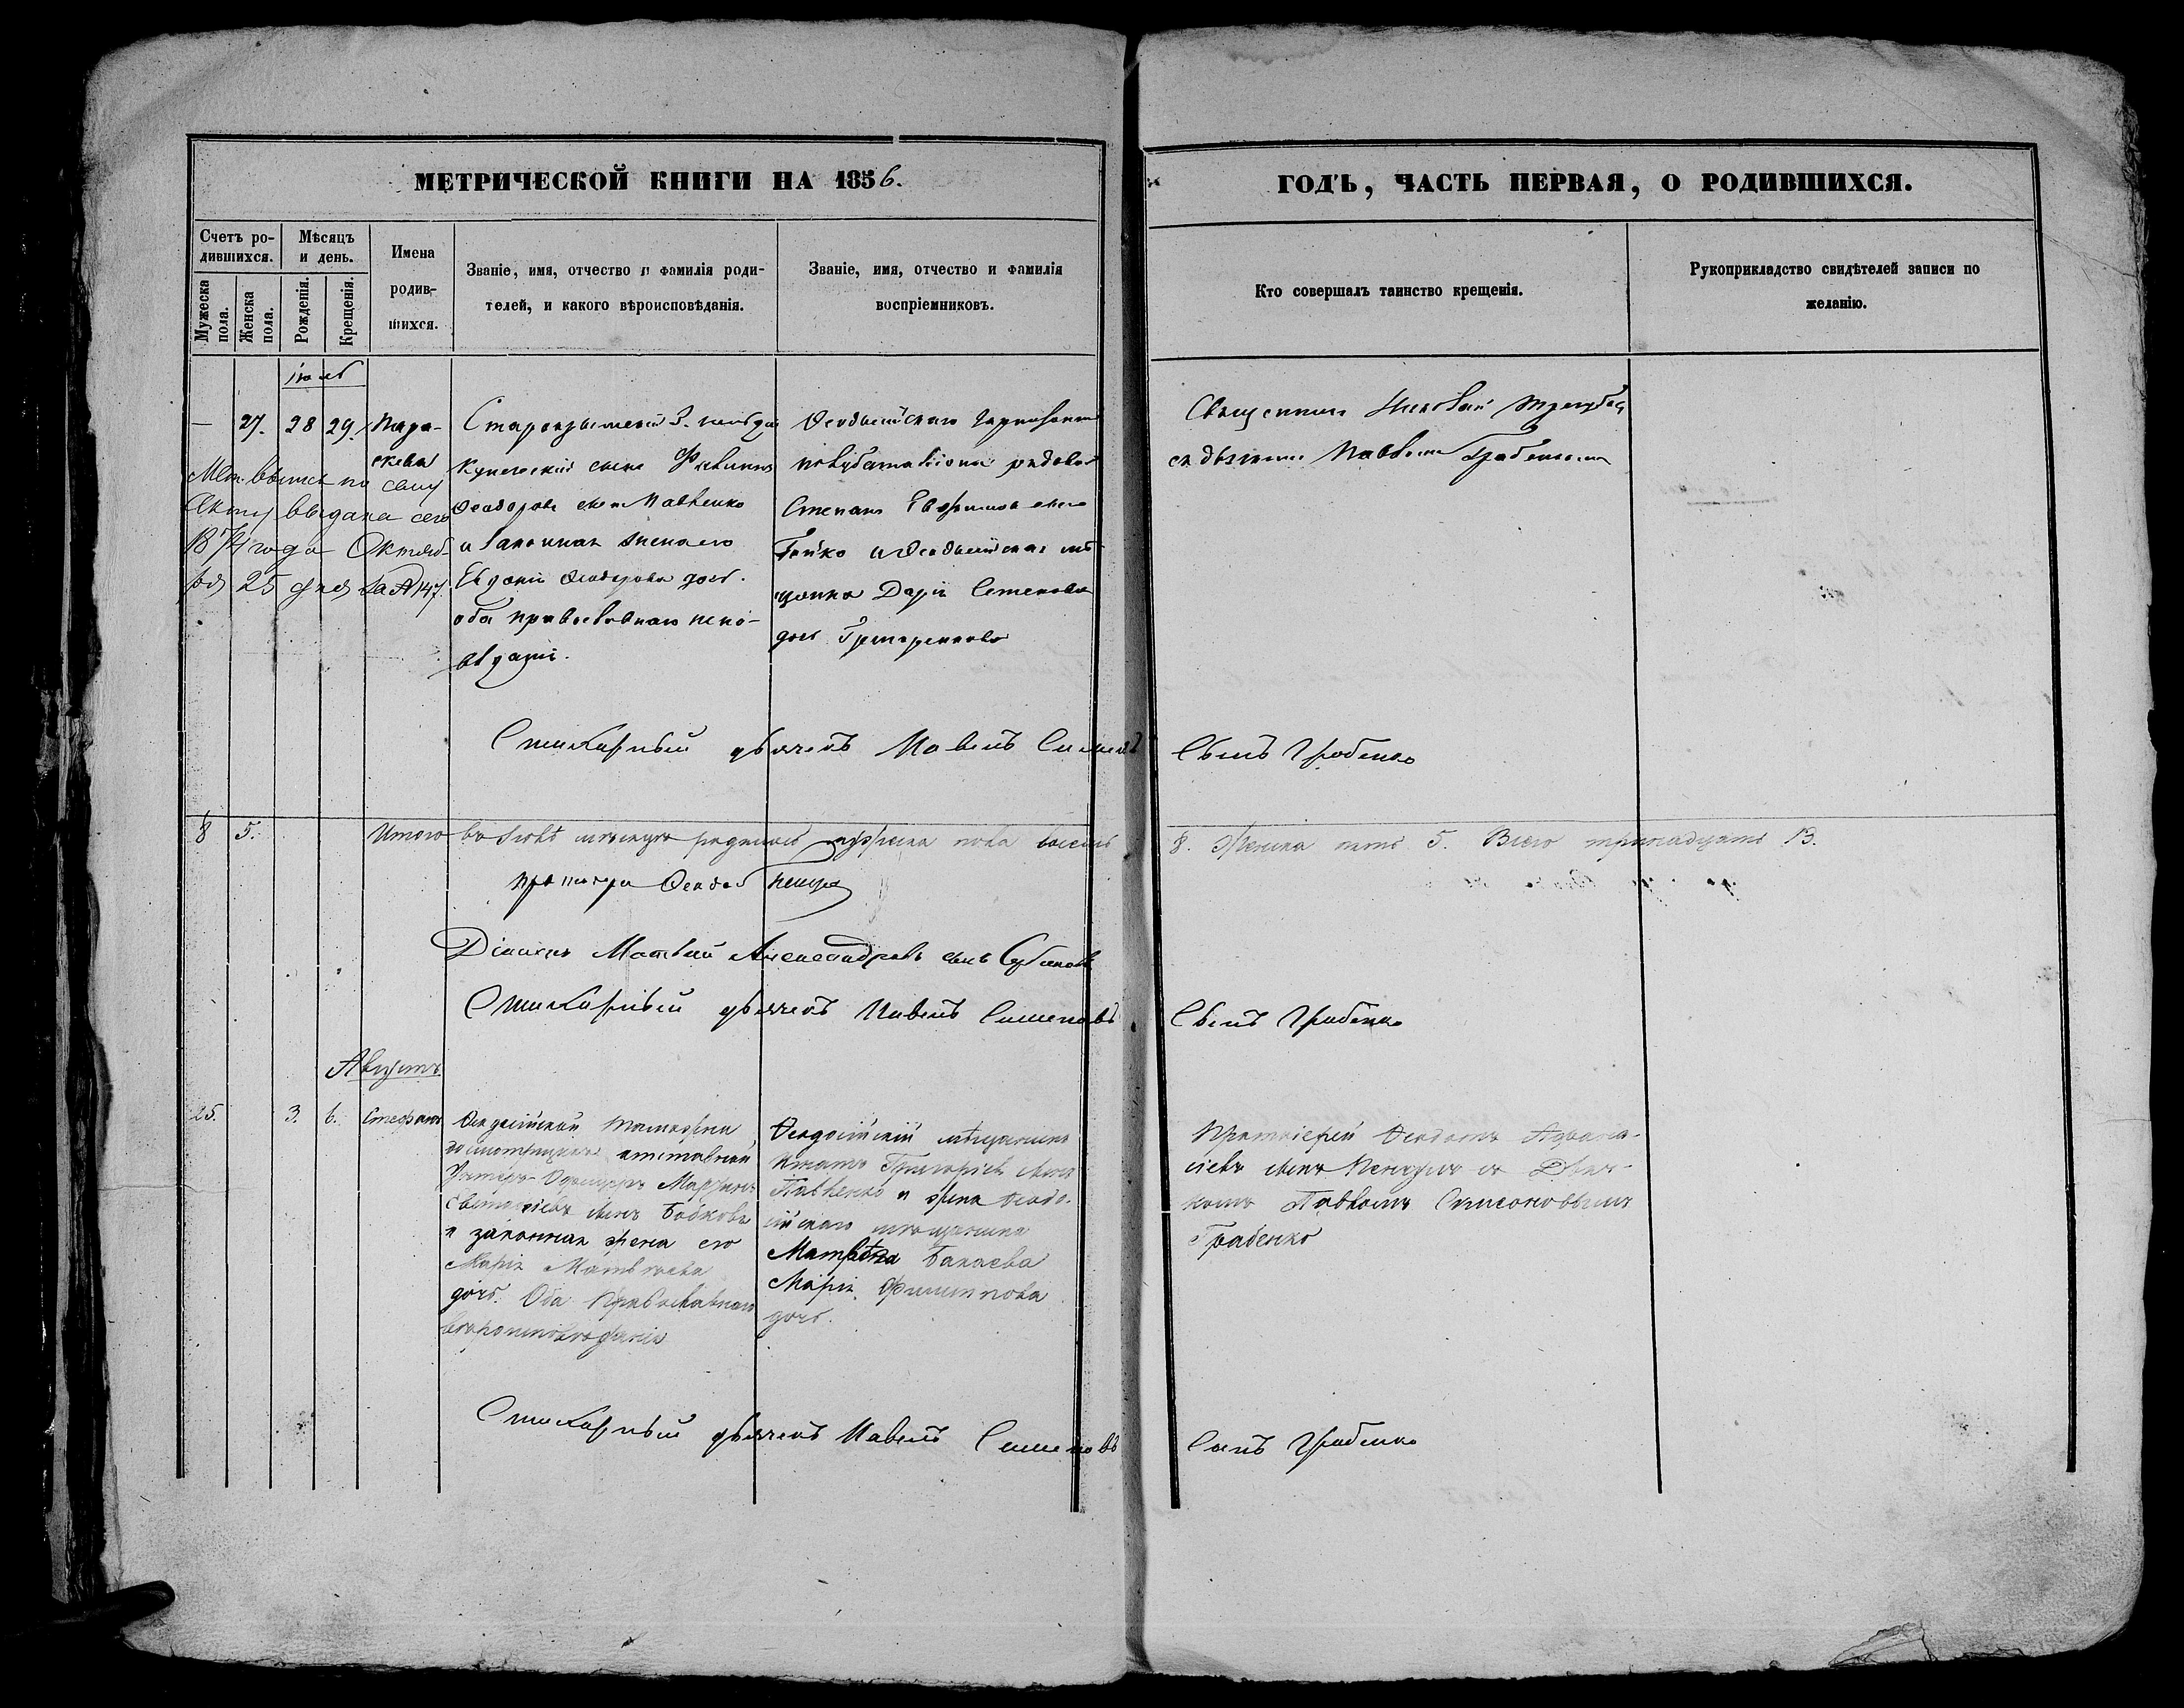 МЕТРИЧЕСКОЙ КНИГИ НА 1856.
ГОДЪ, ЧАСТЬ ПЕРВАЯ, О РОДИВШИХСЯ.
Счетъ ро-
дившихся.
Мужеска
пола.
Женска
пола.
Мѣсяцъ
и день.
Рожденія.
Крещенія.
Имена
родив-
шихся.
Званіе, имя, отчество и фамилія роди-
телей, и какого вѣроисповѣданія.
Званіе, имя, отчество и фамилія
воспріемниковъ.
Кто совершалъ таинство крещенія.
Рукоприкладство свидѣтелей записи по
желанію.
Іюль
— 27. 28 29. Пара-
скева
Старокрымскій 3. гильдіи
купеческій сынъ
Феодоровъ сынъ Павленко
и законная жена его
Феодорова дочь.
оба православнаго испо-
вѣданія.
Феодосійскаго гарнизоннаго
полубаталіона рядовой
Степанъ Евфимовъ сынъ
Бойко и Феодосійская мѣ-
щанка Дарія Семенова
дочь
Священникъ
съ дьячкомъ Павломъ Грабенкомъ
выдана сего
1874 года Октяб-
ря 25 дня за № 147.
Стихарный дьячекъ Павелъ Симеоновъ
сынъ Грабенко
8 5. Итого въ Іюлѣ мѣсяцѣ родилось мужеска пола восемь
8. Женска пять 5. Всего тринадцать 13.
Діаконъ Матвій Александровъ сынъ
Стихарный дьячекъ Павелъ Симеоновъ
сынъ Грабенко
Августъ
25. 3. 6. Стефанъ
Феодосійской таможни
отставной
Унтеръ-Офицеръ
сынъ Бобковъ
и законная жена его
Марія Матвѣева
дочь. Оба Православнаго
вѣроисповѣданія
Феодосійскій мѣщанинъ
Игнатъ Григорьевъ сынъ
Павленко и жена Феодо-
сійскаго мѣщанина
Матвѣя Бакаева
Марія Филиппова
дочь.
Протоіерей Феодотъ Афана-
сіевъ сынъ съ Дьяч-
комъ Павломъ Симеоновымъ
Грабенко
Стихарный дьячекъ Павелъ Симеоновъ
сынъ Грабенко